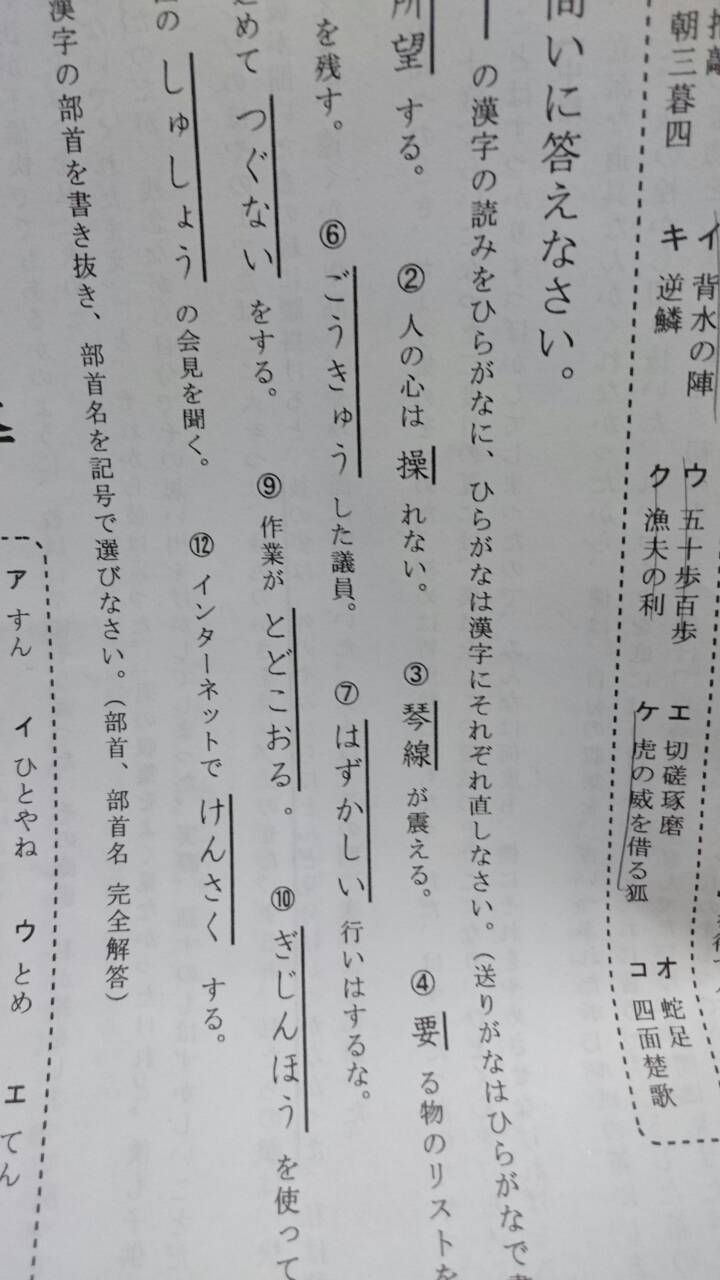 朝三暮四
イ 背水の陣
キ 逆鱗
ウ 五十歩百歩
ク 漁夫の利
エ 切磋琢磨
ケ 虎の威を借る狐
オ 蛇足
コ 四面楚歌
問いに答えなさい。
の漢字の読みをひらがなに、ひらがなは漢字にそれぞれ直しなさい。(送りがなはひらがなで
所望する。 ②人の心は操れない。 ③琴線が震える。 ④要る物のリストを
を残す。 ⑥ごうきゅうした議員。 ⑦はずかしい行いはするな。
めて つぐないをする。 ⑨作業がとどこおる。 ⑩ぎじんほうを使って
の しゅしょうの会見を聞く。 ⑫インターネットでけんさくする。
漢字の部首を書き抜き、部首名を記号で選びなさい。(部首、部首名 完全解答)
ア すん イ ひとやね ウ とめ エ てん